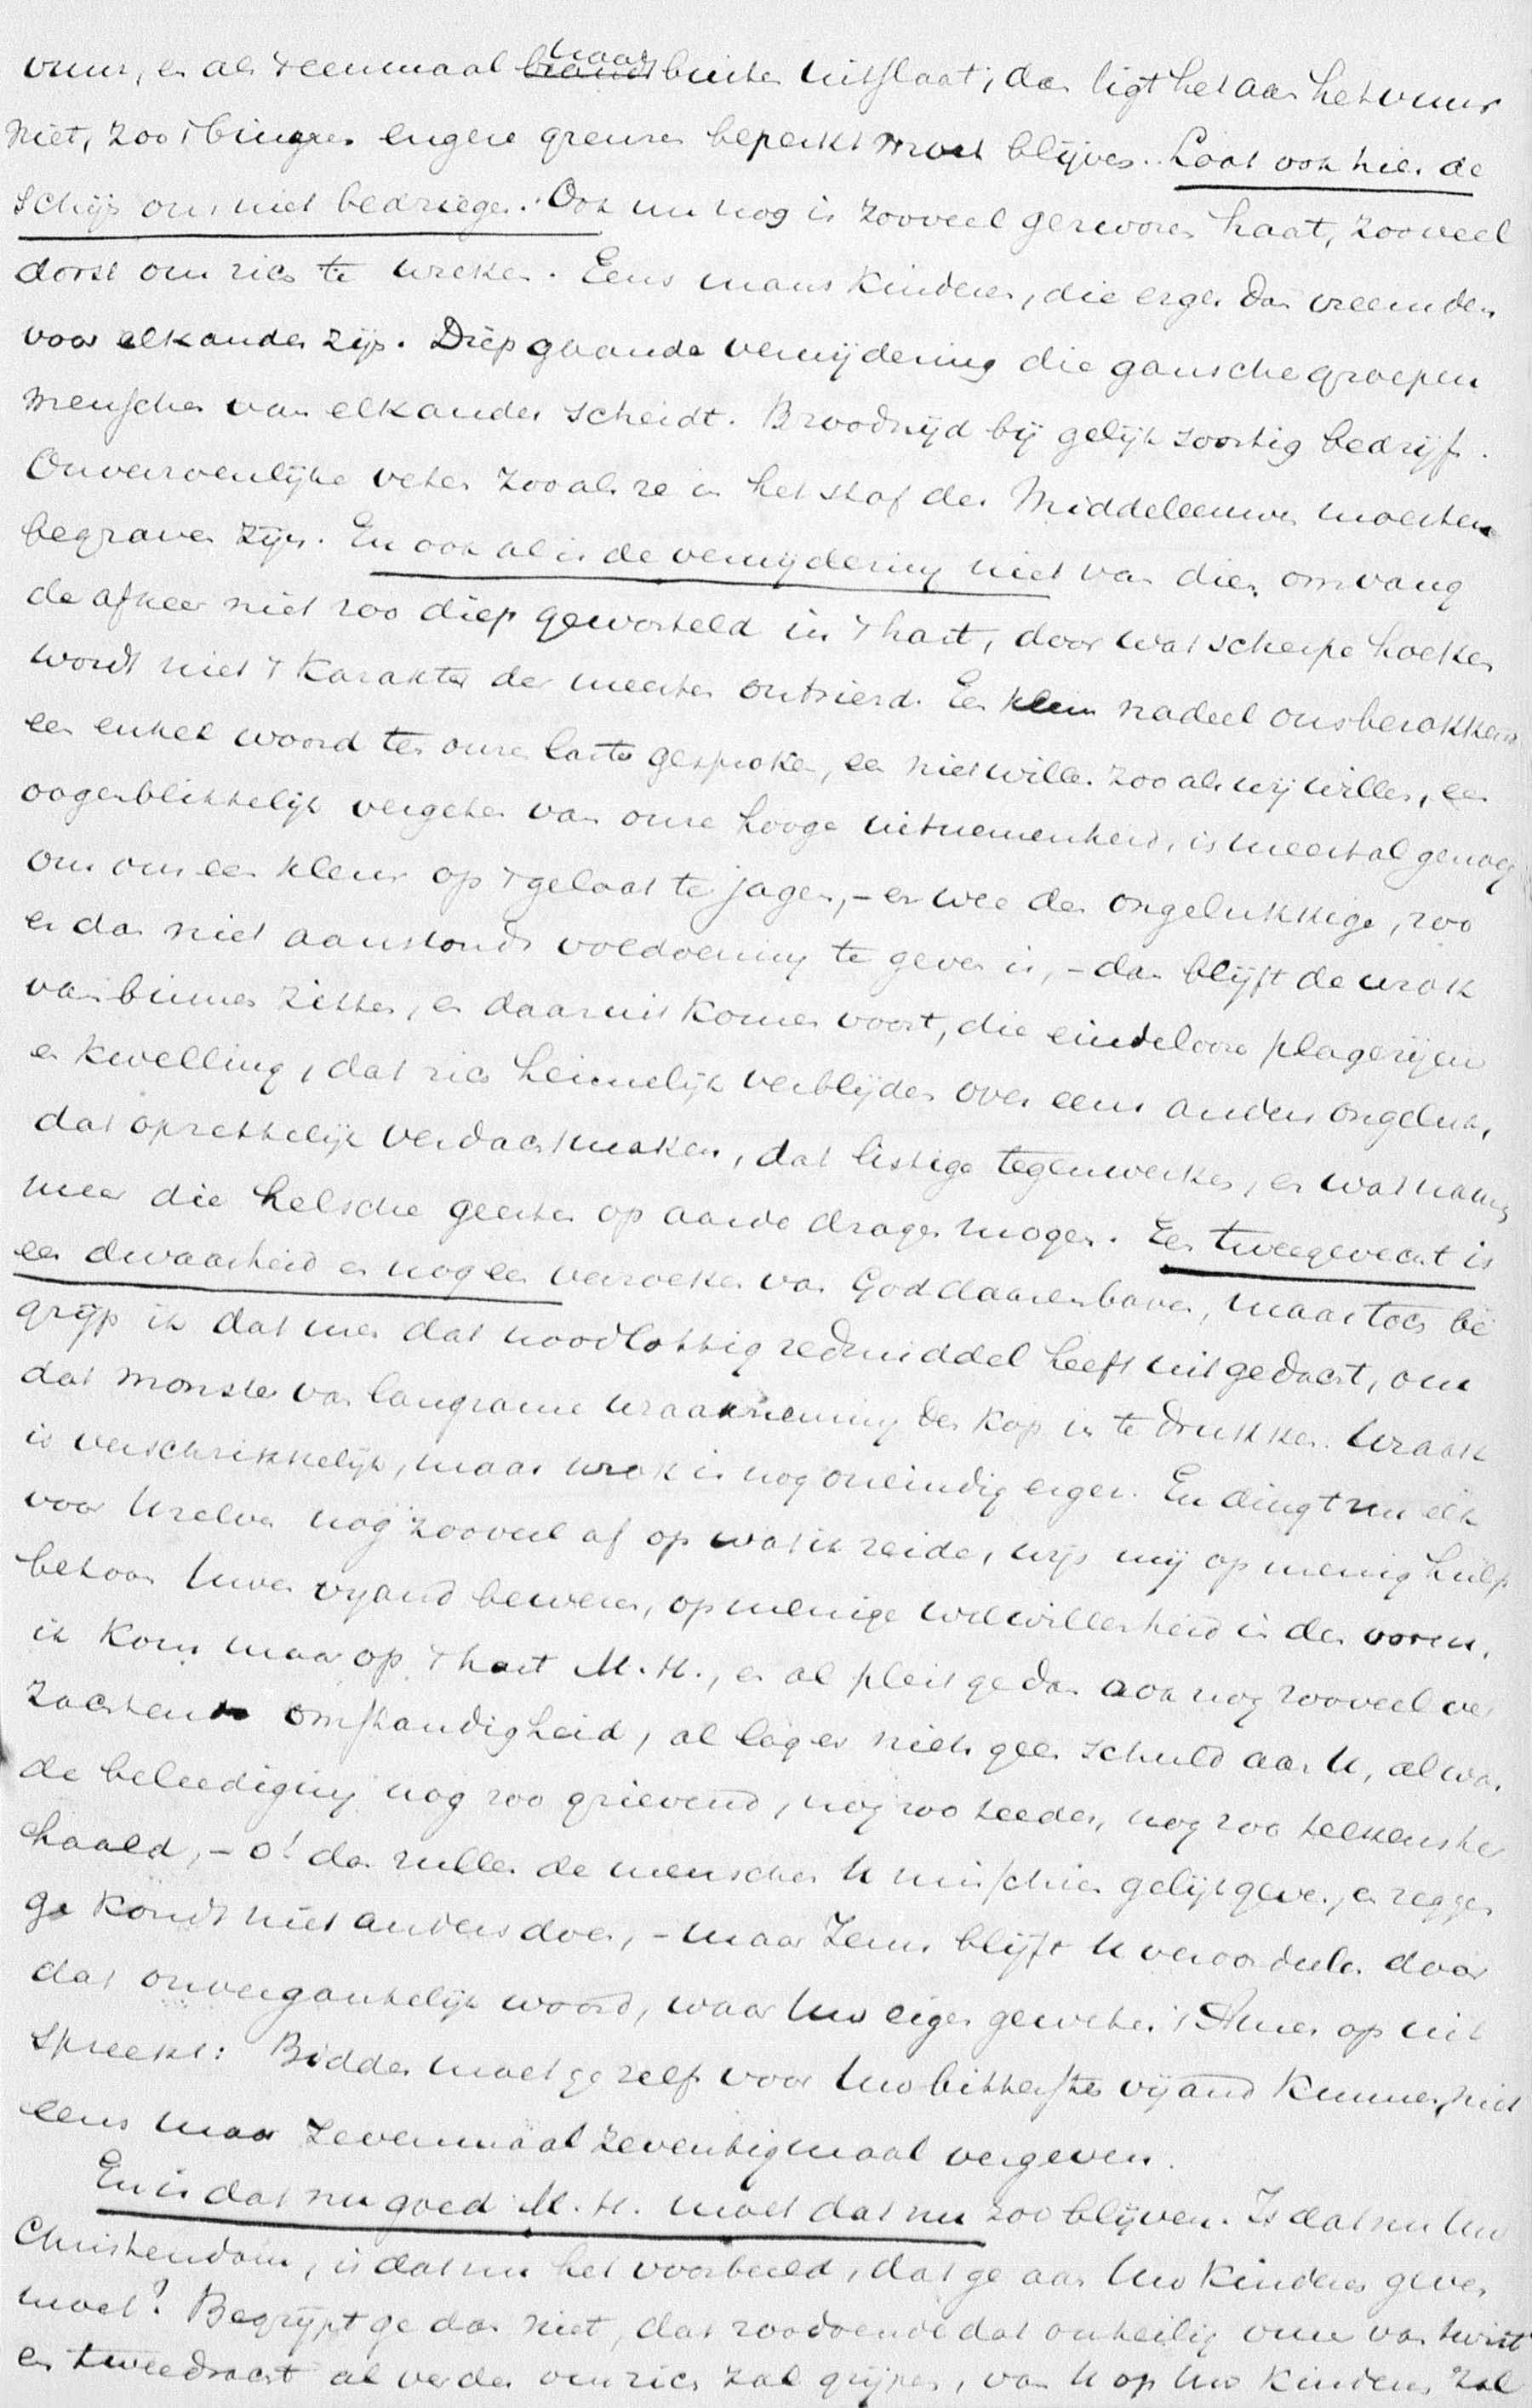 vuur, en als 't eenmaal naar buiten uitslaat, dan ligt het aan het vuur
niet, zoo 't binnen engere grenzen beperkt moet blijven. Laat ook hier de
schijn ons niet bedriegen. Ook nu nog is zooveel gezworen haat, zooveel
dorst om zich te wreken. Eens mans kinderen, die erger dan vreemden
voor elkander zijn. Diep gaande verwijdering die gansche groepen
menschen van elkander scheidt. Broodnijd bij gelijksoortig bedrijf.
Onverzoenlijke veten zooals ze in het stof der Middeleeuwen moesten
begraven zijn. En ook al is de verwijdering niet van dien omvang
de afkeer niet zoo diep geworteld in 't hart, door wat scherpe hoeken
wordt niet 't karakter der meesten ontsierd. Een klein nadeel ons berokkend
een enkel woord ten onze laste gesproken, een niet willen zooals wij willen, een
oogenblikkelijk vergeten van onze hooge uitnemenheid, is meestal genoeg
om ons een kleur op 't gelaat te jagen, - en wee den ongelukkige, zoo
er dan niet aanstonds voldoening te geven is, - dan blijft de wrok
van binnen zitten, en daaruit komen voort, die eindelooze plagerijen
en kwelling, dat zich heimelijk verblijden over eens anders ongeluk,
dat opzettelijk verdachtmaken, dat listige tegenwerken, en wat naam
meer die helsche geesten op aarde dragen mogen. Een tweegevecht is
een dwaasheid en nog een verzoeken van God daarenboven, maar toch be
grijp ik dat men dat noodlottig redmiddel heeft uitgedacht, om
dat monster van langzame wraakneming den kop in te drukken. Wraak
is verschrikkelijk, maar wrok is nog oneindig erger. En dingt nu elk
voor Uzelven nog zooveel af op wat ik zeide, wijs mij op menig hulp
betoon Uwen vijand bewezen, op menige welwillendheid in den vorm,
ik kom maar op 't hart M.H., en al pleit ge dan ook nog zooveel ver
zachtende omstandigheid, al lag er niets geen schuld aan U, al was
de beleediging nog zoo grievend, nog zoo teeder, nog zoo telkens her
haald, - o! dan zullen de menschen U misschien gelijk geven, en zeggen
ge kondt niet anders doen, - maar Jezus blijft U veroordeelen door
dat onvergankelijk woord, waar Uw eigen geweten 't Amen op uit
spreekt: Bidden moet ge zelfs voor Uw bittersten vijand kunnen, niet
eens maar Zevenmaal Zeventigmaal vergeven.
En is dat nu goed M.H. moet dat nu zoo blijven. Is dat nu Uw
Christendom, is dat nu het voorbeeld, dat ge aan Uw kinderen geven
moet? Begrijpt ge dan niet, dat zoodoende dat onheilig vuur van twist
en tweedracht al verder om zich zal grijpen, van U op Uw kinderen zal